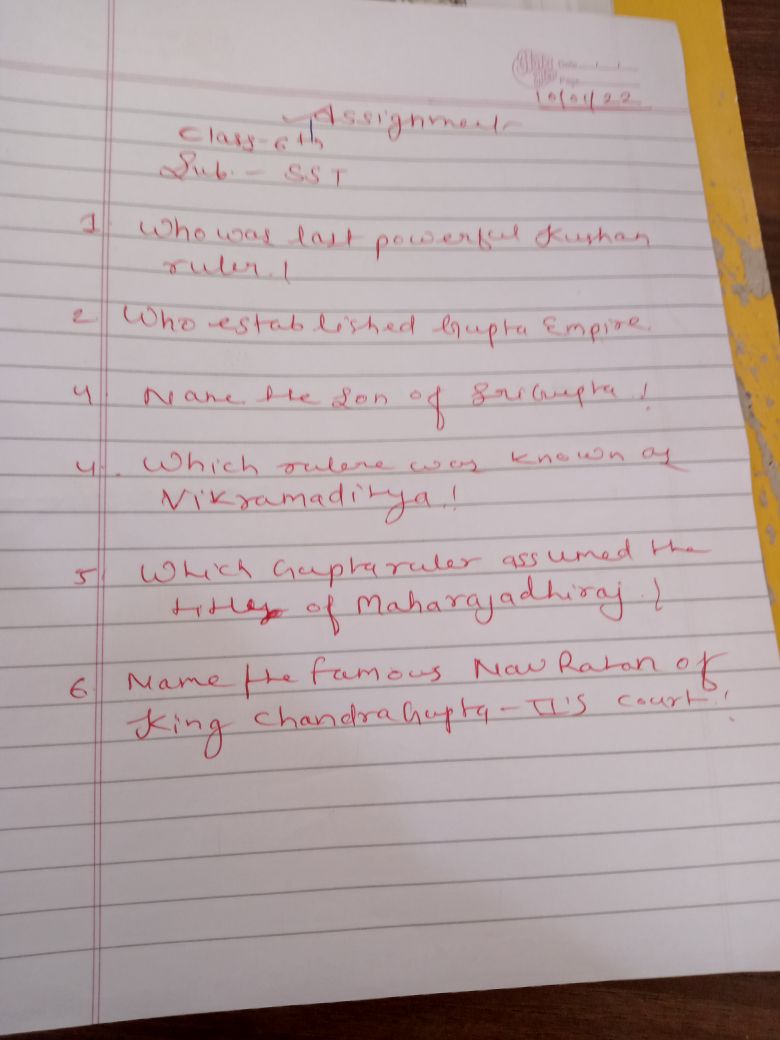 Date
Page
10/01/22
Assignment
Class-6th
Sub. - SST
1 Who was last powerful Kushan
ruler !
2 Who established Gupta Empire.
4 Name the Son of SriGupta !
4. Which rulere was known as
Vikramaditya !
5 Which Gupta ruler assumed the
titles of Maharajadhiraj. !
6. Name the famous Nav Ratan of
King ChandraGupta-II'S court !